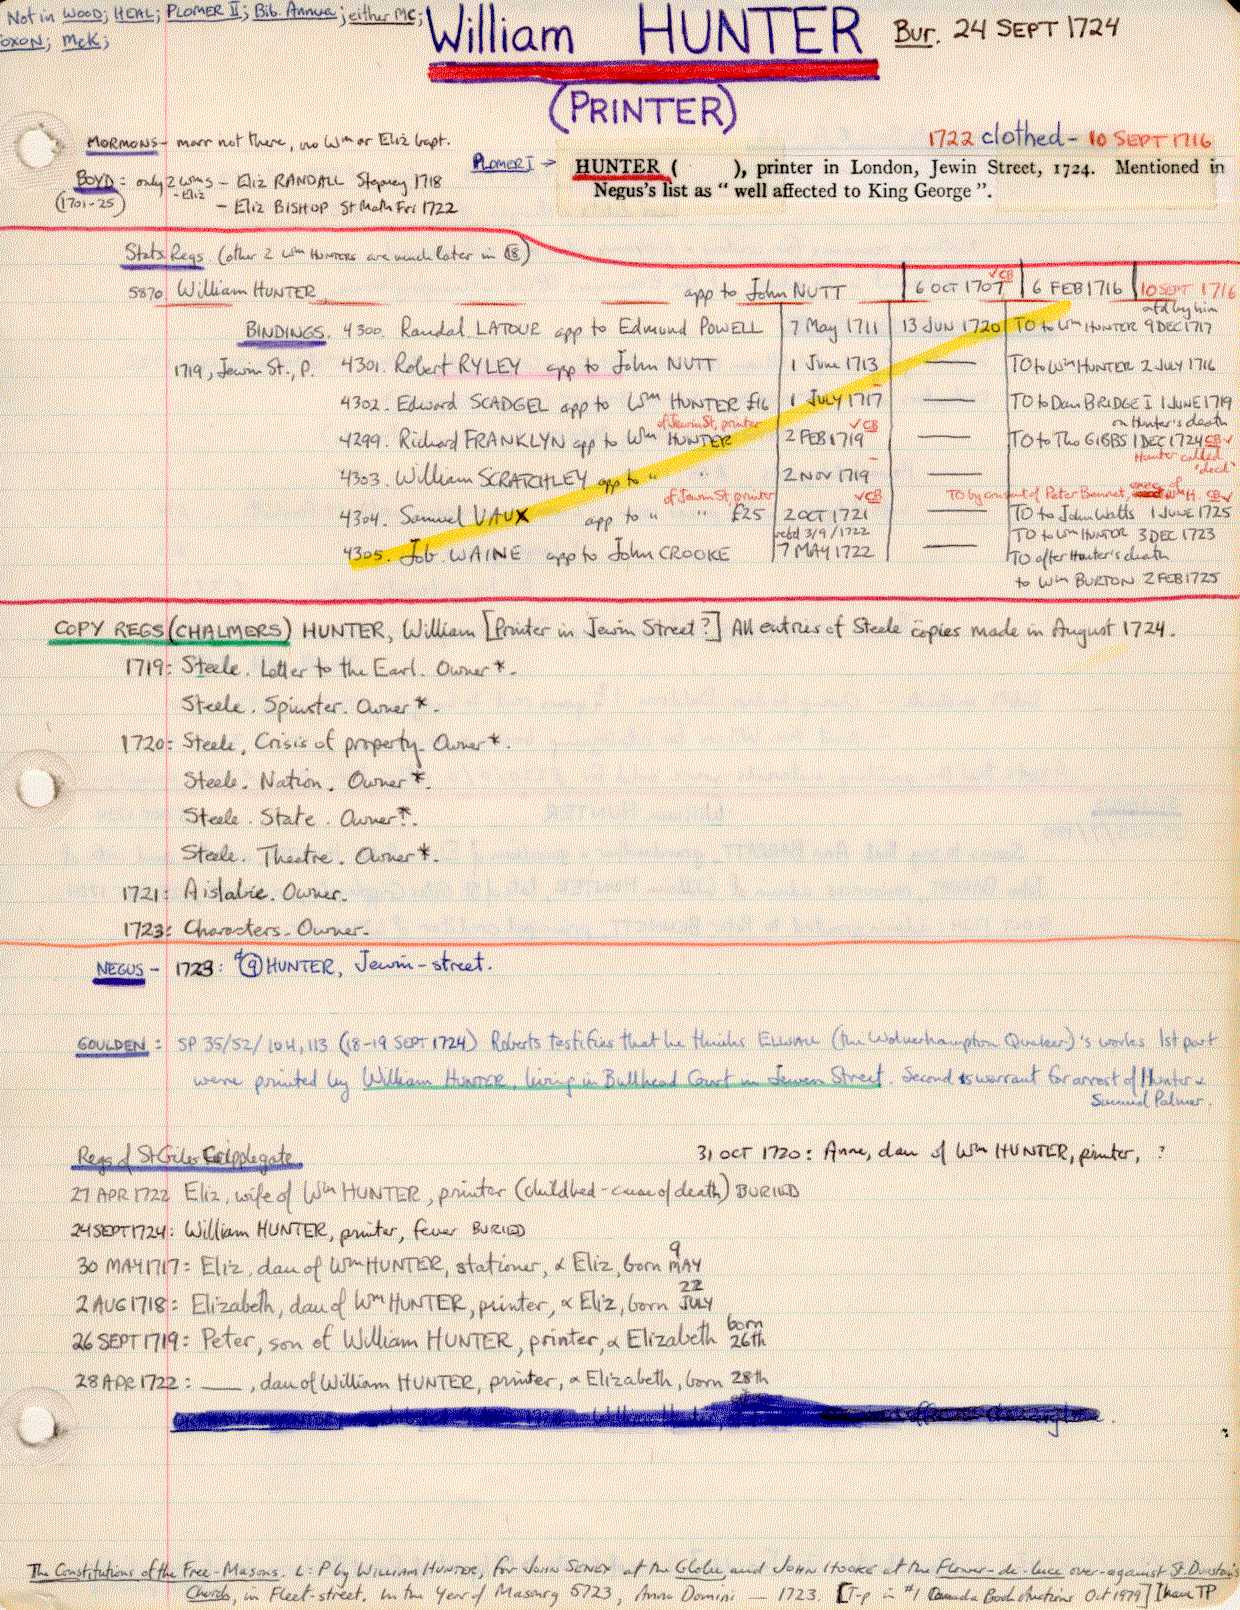 Not in WOOD; HEAL; PLOMER II; Bib. Annua; either MC;
FOXON; McK;
William HUNTER
Bur. 24 SEPT 1724
(PRINTER)
MORMONS - marr not there, no Wm or Eliz bapt.
1722 clothed - 10 SEPT 1716
PLOMER I → HUNTER ( ), printer in London, Jewin Street, 1724. Mentioned in
Negus's list as "well affected to King George".
BOYD: only 2 Wms - Eliz RANDALL Stepney 1718
(1701-25) - Eliz
- Eliz BISHOP St Math Fri 1722
Stats Regs (other 2 Wm HUNTERs are much later in 18)
5870 William HUNTER app to John NUTT 6 OCT 1707 √CB 6 FEB 1716 10 SEPT 1716
BINDINGS. 4300. Randal LATOUR app to Edmund POWELL 7 May 1711 13 JUN 1720 TO to Wm HUNTER 9 DEC 1717
1719, Jewin St., P. 4301. Robert RYLEY app to John NUTT 1 June 1713 — TO to Wm HUNTER 2 JULY 1716
4302. Edward SCADGEL app to Wm HUNTER £16 1 JULY 1717 — TO to Dan BRIDGE I 1 JUNE 1719
of Jewin St, printer √CB on Hunter's death
4299. Richard FRANKLYN app to Wm HUNTER 2 FEB 1719 — TO to Tho GIBBS 1 DEC 1724 CB √
Hunter called 'decd'
4303. William SCRATCHLEY app to " " 2 NOV 1719 —
of Jewin St, printer √CB TO by consent of Peter Bennet, exec of Wm H. CB √
4304. Samuel VAUX app to " " £25 2 OCT 1721 — TO to John Watts 1 JUNE 1725
rebd 3/9/1722 TO to Wm HUNTER 3 DEC 1723
4305. Job WAINE app to John CROOKE 7 MAY 1722 — TO after Hunter's death
to Wm BURTON 2 FEB 1725
COPY REGS (CHALMERS) HUNTER, William [Printer in Jewin Street?] All entries of Steele copies made in August 1724.
1719: Steele. Letter to the Earl. Owner*.
Steele. Spinster. Owner*.
1720: Steele, Crisis of property. Owner*.
Steele. Nation. Owner*.
Steele. State. Owner*.
Steele. Theatre. Owner*.
1721: Aislabie. Owner.
1723: Characters. Owner.
NEGUS - 1723: 9 HUNTER, Jewin-street.
GOULDEN: SP 35/52/104, 113 (18-19 SEPT 1724) Roberts testifies that he thinks ELLWALL (the Wolverhampton Quaker)'s works 1st part
were printed by William HUNTER, living in Bullhead Court in Jewen Street. Second is warrant for arrest of Hunter &
Samuel Palmer.
Regs of St Giles Cripplegate
31 OCT 1720: Anne, dau of Wm HUNTER, printer, ?
27 APR 1722 Eliz, wife of Wm HUNTER, printer (childbed - cause of death) BURIED
24 SEPT 1724: William HUNTER, printer, fever BURIED
30 MAY 1717: Eliz, dau of Wm HUNTER, stationer, & Eliz, born 9 MAY
2 AUG 1718: Elizabeth, dau of Wm HUNTER, printer, & Eliz, born 22 JULY
26 SEPT 1719: Peter, son of William HUNTER, printer, & Elizabeth born 26th
28 APR 1722: ___, dau of William HUNTER, printer, & Elizabeth, born 28th
The Constitutions of the Free-Masons. L: P by WILLIAM HUNTER, for JOHN SENEX at the Globe, and JOHN HOOKE at the Flower-de-luce over-against St. Dunstan's
Church, in Fleet-street. In the Year of Masonry 5723, Anno Domini — 1723. [T-p in #1 Canada Book Auctions Oct 1979] I have TP